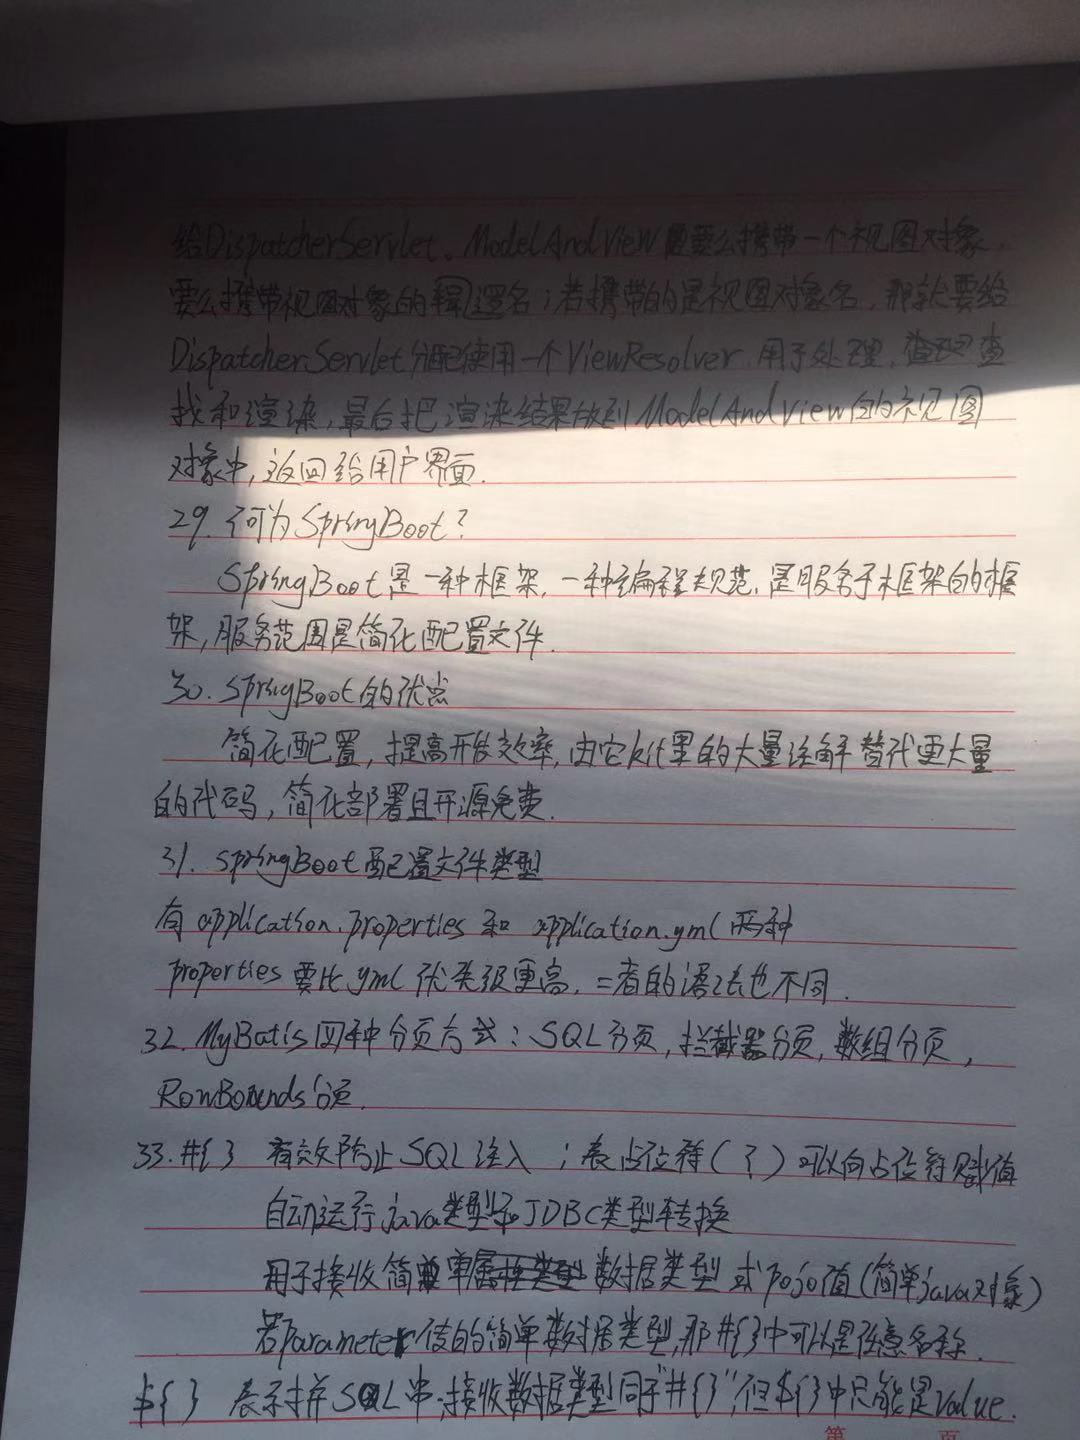 给DispatcherServlet。ModelAndView 要么携带一个视图对象,
要么携带视图对象的逻辑名;若携带的是视图对象名,那就要给
DispatcherServlet分配使用一个ViewResolver 用于处理,查
找和渲染,最后把渲染结果放到ModelAndView的视图
对象中,返回给用户界面.
29. 何为SpringBoot?
SpringBoot是一种框架,一种编程规范,是服务于框架的框
架,服务范围是简化配置文件.
30. SpringBoot的优点
简化配置,提高开发效率,由它kit里的大量注解替代更大量
的代码,简化部署且开源免费.
31. SpringBoot配置文件类型
有 application.properties 和 application.yml 两种
properties 要比 yml 优先级更高,二者的语法也不同.
32. MyBatis四种分页方式:SQL分页,拦截器分页,数组分页,
RowBounds分页.
33. #{} 有效防止SQL注入;表占位符(?)可以向占位符赋值
自动运行java类型和JDBC类型转换
用于接收简单数据类型 或 pojo值(简单java对象)
若Parameter传的简单数据类型,那#{}中可以是任意名称.
${} 表示拼SQL串,接收数据类型同于"#{}",但${}中只能是value.
第 页